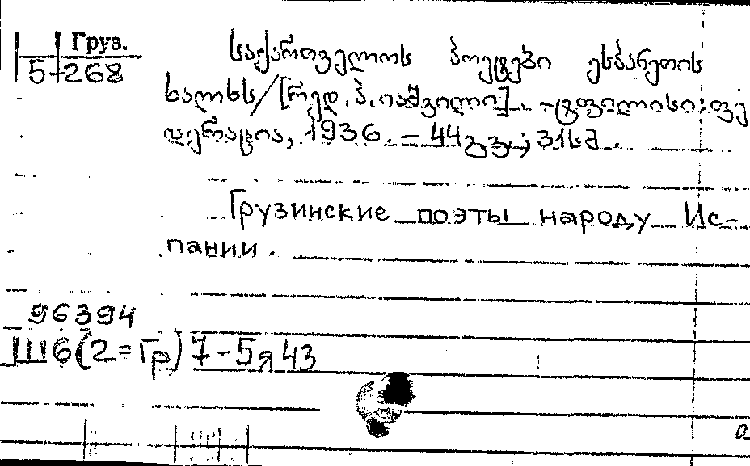 Груз.
5-268
საქართველოს პოეტები ესპანეთის
ხალხს/[რედ. პ. იაშვილი]. - ტფილისი: ფე
დერაცია, 1936. - 44გვ.; 31სმ.
Грузинские поэты народу Ис-
пании.
96394
Ш6(2=Гр)7-5я43